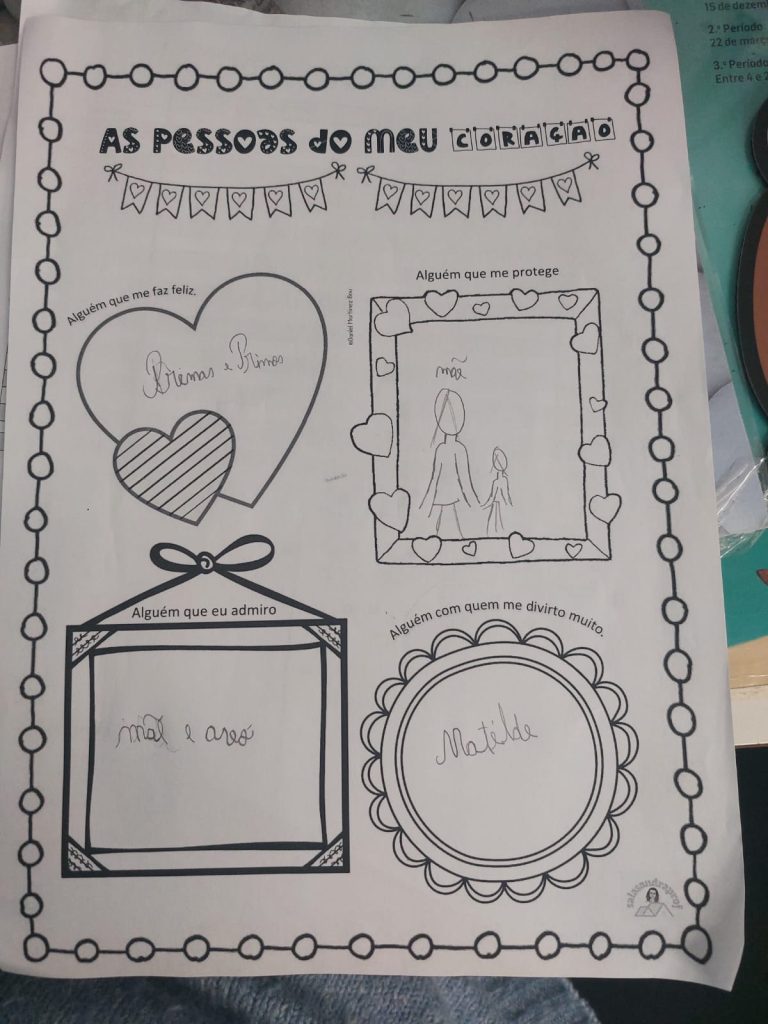 15 de dezem
2.º Período
22 de março
3.º Período
Entre 4 e 2
AS PESSOAS DO MEU CORAÇÃO
Alguém que me faz feliz.
Primas e Primos
Alguém que me protege
©Daniel Martinez Bou
mãe
Alguém que eu admiro
mãe e avó
Alguém com quem me divirto muito.
Matilde
salasandraprof